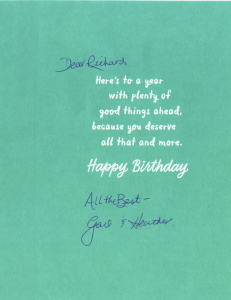 Dear Richard,
Here's to a year
with plenty of
good things ahead,
because you deserve
all that and more.
Happy Birthday
All the Best -
Gail & Heather